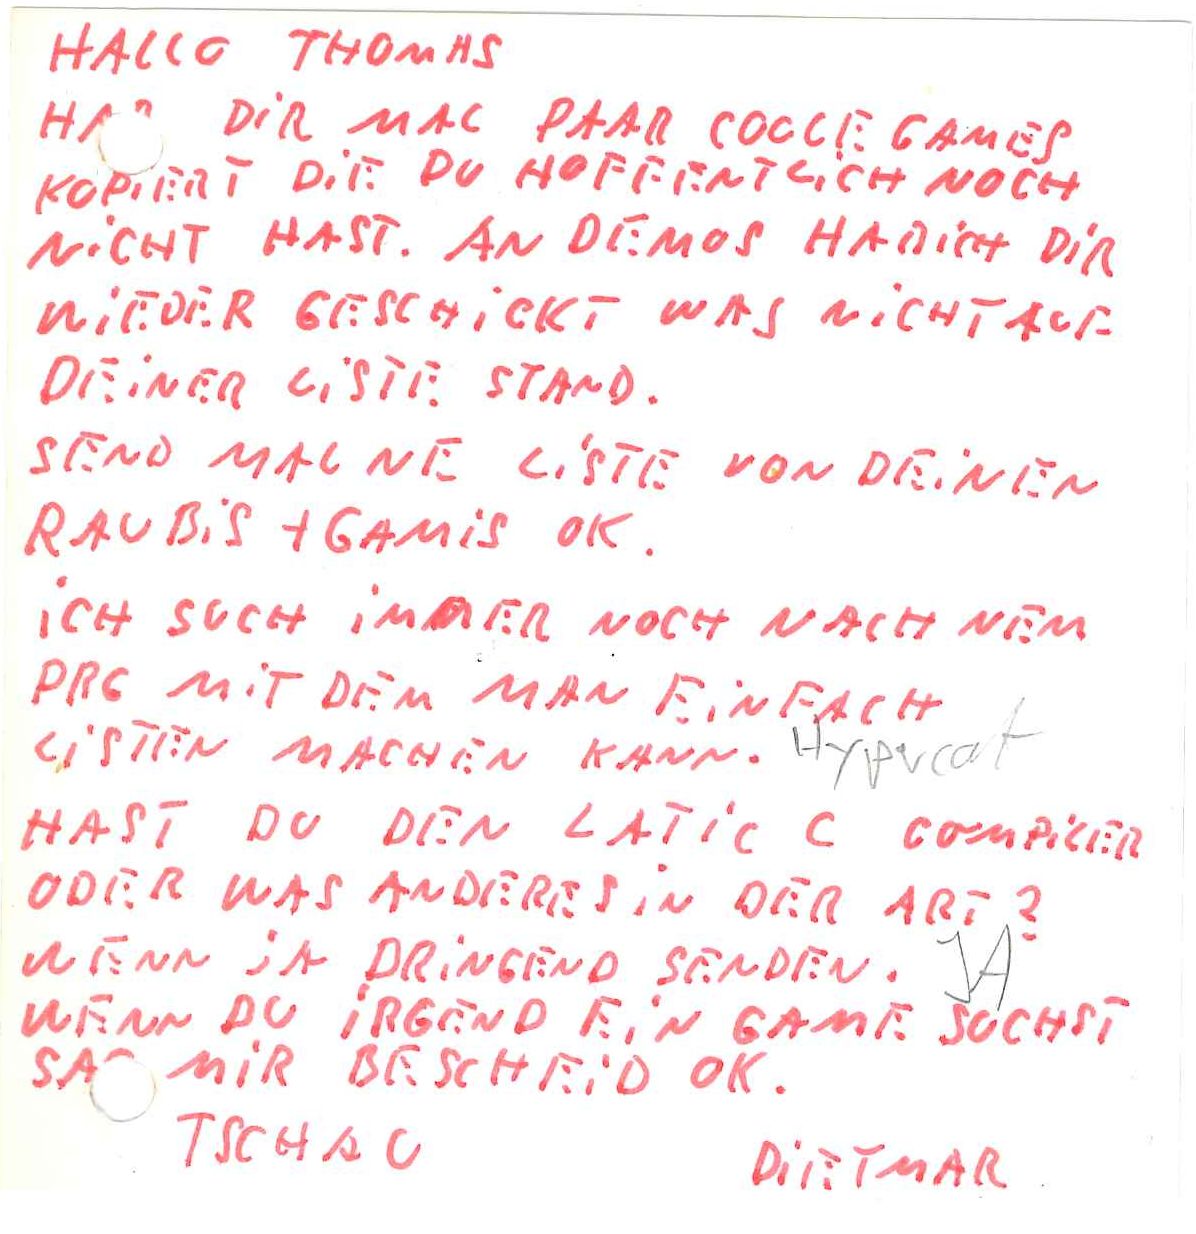 HALLO THOMAS
HAB DIR MAL PAAR COOLE GAMES
KOPIERT DIE DU HOFFENTLICH NOCH
NICHT HAST. AN DEMOS HAB ICH DIR
WIEDER GESCHICKT WAS NICHT AUF
DEINER LISTE STAND.
SEND MAL NE LISTE VON DEINEN
RAUBIS + GAMIS OK.
ICH SUCH IMMER NOCH NACH NEM
PRG MIT DEM MAN EINFACH
LISTEN MACHEN KANN. Hypercat
HAST DU DEN LATIC C COMPILER
ODER WAS ANDERES IN DER ART?
WENN JA DRINGEND SENDEN. JA
WENN DU IRGEND EIN GAME SUCHST
SAG MIR BESCHEID OK.
TSCHAU
DIETMAR